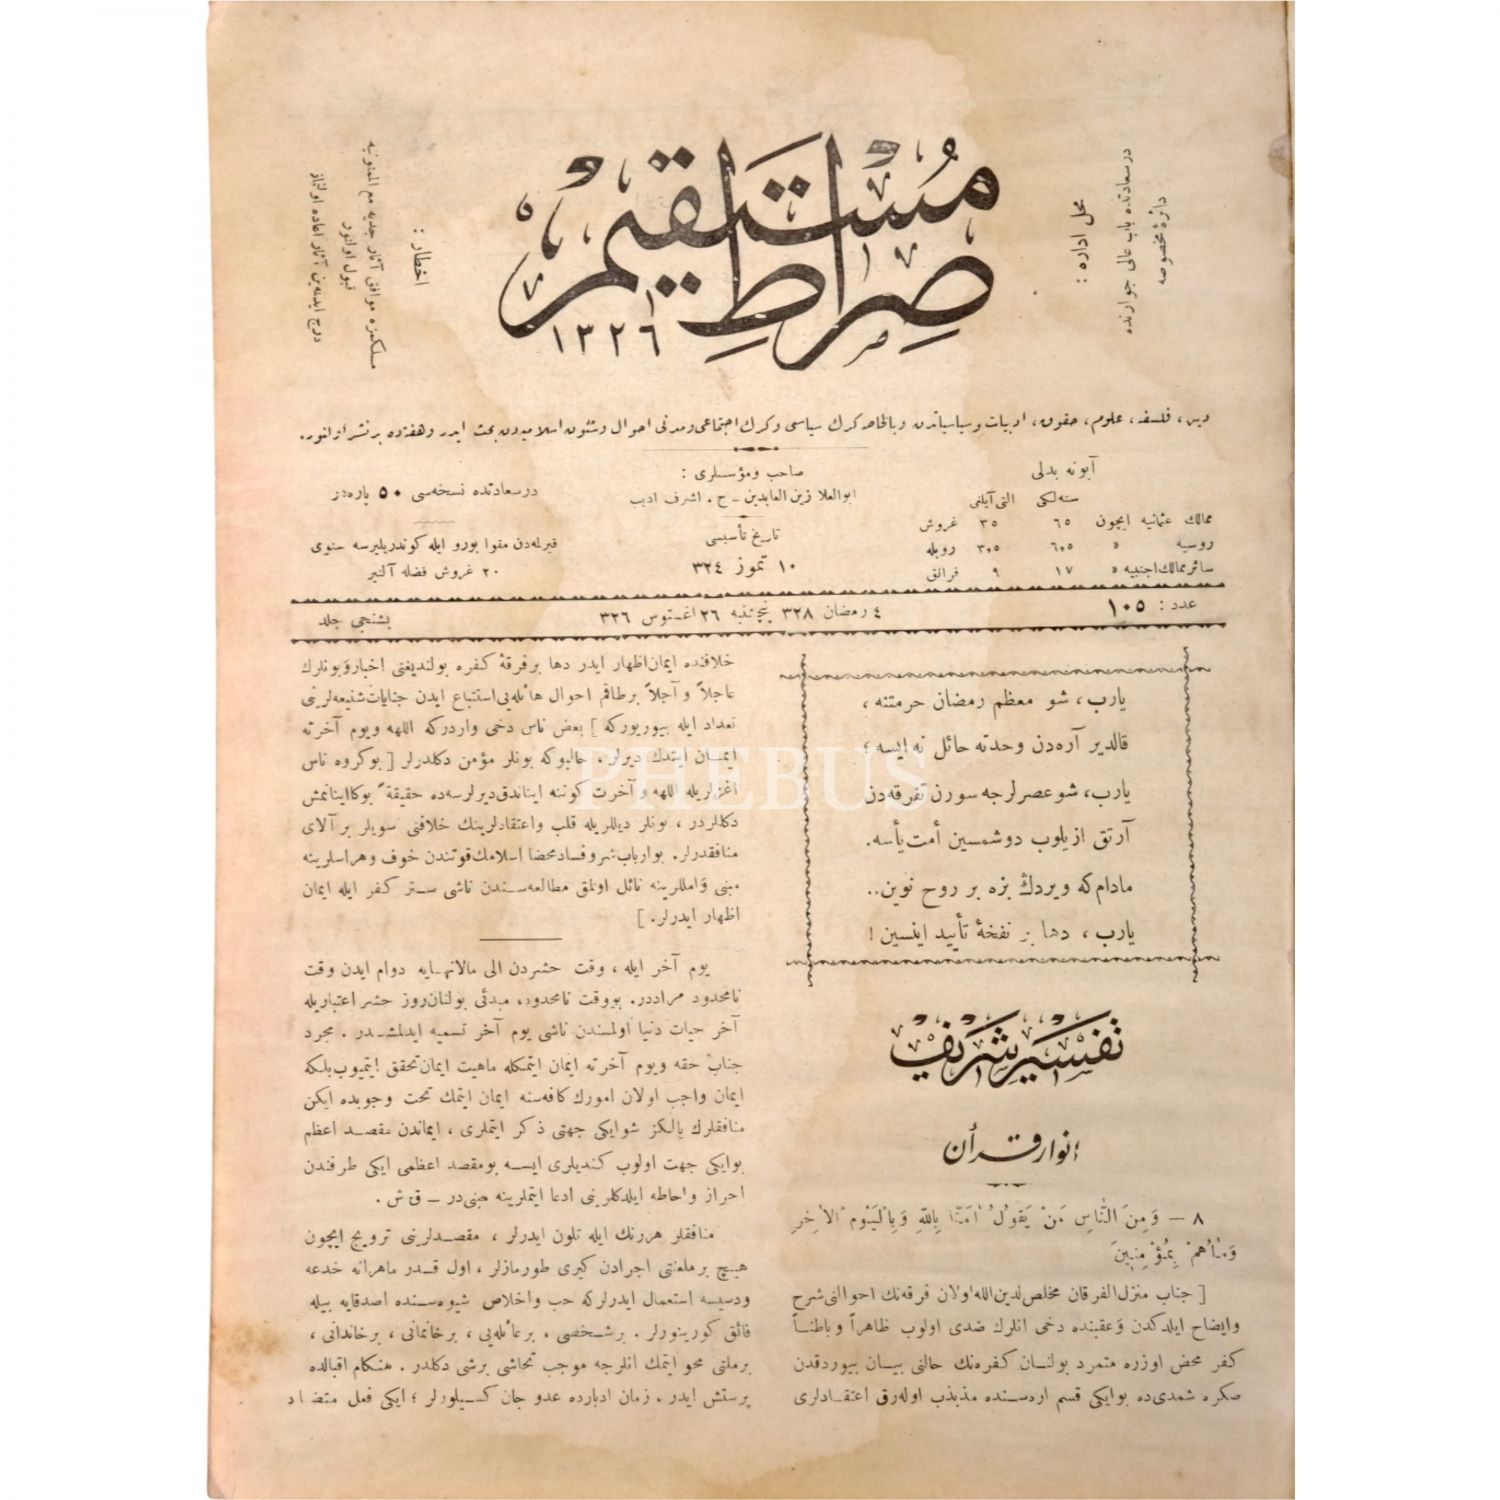 مُسْتَقِيم
صِرَاط
١٣٢٦
محل اداره :
درسعادتده باب عالی جوارنده
دائرۀ مخصوصه
اخطار :
مسلكمزه موافق آثار جدیه مع الممنونیه
قبول اولنور
درج ایدلمه‌ین آثار اعاده اولنماز
دین، فلسفه، علوم، حقوق، ادبیات و سیاسیاتدن و بالخاصه كرك سیاسی و كرك اجتماعی و مدنی احوال و شئون اسلامیه‌دن بحث ایدر و هفته‌ده بر نشر اولنور.
آبونه بدلی
سنه‌لكی التی آیلغی
ممالك عثمانیه ایچون ٦٥ ٣٥ غروش
روسیه « ٦٫٥ ٣٫٥ روبله
سائر ممالك اجنبیه « ١٧ ٩ فرانق
صاحب و مؤسسلری :
ابوالعلا زین العابدین ـ ح . اشرف ادیب
تاریخ تأسیسی
١٠ تموز ٣٢٤
درسعادتده نسخه‌سی ٥٠ پاره‌در
قیرلمه‌دن مقوا بورو ایله كوندریلیرسه سنوی
٢٠ غروش فضله آلنیر
عدد : ١٠٥
٤ رمضان ٣٢٨ پنجشنبه ٢٦ اغستوس ٣٢٦
بشنجی جلد
یارب ، شو معظم رمضان حرمتنه ،
قالدیر آره‌دن وحدته حائل نه ایسه ؛
یارب، شو عصرلرجه سورن تفرقه‌دن
آرتق ازیلوب دوشمسین أمت یأسه.
مادام كه ویردڭ بزه بر روح نوین..
یارب ، دها بر نفخۀ تأیید اینسین !
تفسیر شریف
انوار قرأن
٨ – وَمِنَ النَّاسِ مَنْ يَقُولُ اٰمَنَّا بِاللّٰهِ وَبِالْيَوْمِ الْاٰخِرِ
وَمَا هُمْ بِمُؤْمِنِينَ
[ جناب منزل الفرقان مخلص لدین الله اولان فرقه‌نك احوالنی شرح
وایضاح ایلدكدن و عقبنده دخی انلرك ضدی اولوب ظاهراً و باطناً
كفر محض اوزره متمرد بولنان كفره‌نك حالنی بیان بیوردقدن
صكره شمدی‌ده بو ایكی قسم اره‌سنده مذبذب اوله‌رق اعتقادلری
خلافنده ایمان اظهار ایدر دها بر فرقۀ كفره بولندیغنی اخبار و بونلرك
عاجلاً و آجلاً بر طاقم احوال هائله‌یی استتباع ایدن جنایات شنیعه‌لرینی
تعداد ایله بیوریوركه ] بعض ناس دخی واردركه اللهه و یوم آخرته
ایمان ایتدك دیرلر ، حالبوكه بونلر مؤمن دكلدرلر [ بو كروه ناس
اغزلریله اللهه و آخرت كوننه ایناندق دیرلرسه‌ده حقیقةً بوكا اینانمش
دكللردر ، بونلر دیللریله قلب و اعتقادلرینك خلافنی سویلر بر آلای
منافقدرلر. بو ارباب شر و فساد محضا اسلامك قوتندن خوف و هراسلرینه
مبنی و امللرینه نائل اولمق مطالعه‌سندن ناشی ستر كفر ایله ایمان
اظهار ایدرلر. ]
یوم آخر ایله ، وقت حشردن الی مالانهایه دوام ایدن وقت
نامحدود مراددر. بو وقت نامحدود، مبدئی بولنان روز حشر اعتباریله
آخر حیات دنیا اولمسندن ناشی یوم آخر تسمیه ایدلمشدر . مجرد
جناب حقه و یوم آخرته ایمان ایتمكله ماهیت ایمان تحقق ایتمیوب بلكه
ایمان واجب اولان امورك كافه‌سنه ایمان ایتمك تحت وجوبده ایكن
منافقلرك یالكز شو ایكی جهتی ذكر ایتملری ، ایماندن مقصد اعظم
بو ایكی جهت اولوب كندیلری ایسه بو مقصد اعظمی ایكی طرفندن
احراز و احاطه ایلدكلرینی ادعا ایتملرینه مبنی‌در ـ ق ش .
منافقلر هر رنك ایله تلون ایدرلر ، مقصدلرینی ترویج ایچون
هیچ بر ملعنتی اجرادن كیری طورمازلر ، اول قدر ماهرانه خدعه
و دسیسه استعمال ایدرلركه حب و اخلاص شیوه‌سنده اصدقایه بیله
فائق كورینورلر . بر شخصی ، بر عائله‌یی ، بر خانمانی ، بر خاندانی ،
بر ملتی محو ایتمك انلرجه موجب تحاشی بر شی دكلدر . هنكام اقبالده
پرستش ایدر . زمان ادبارده عدو جان كسیلورلر ؛ ایكی فعل متضاد
PHEBUS